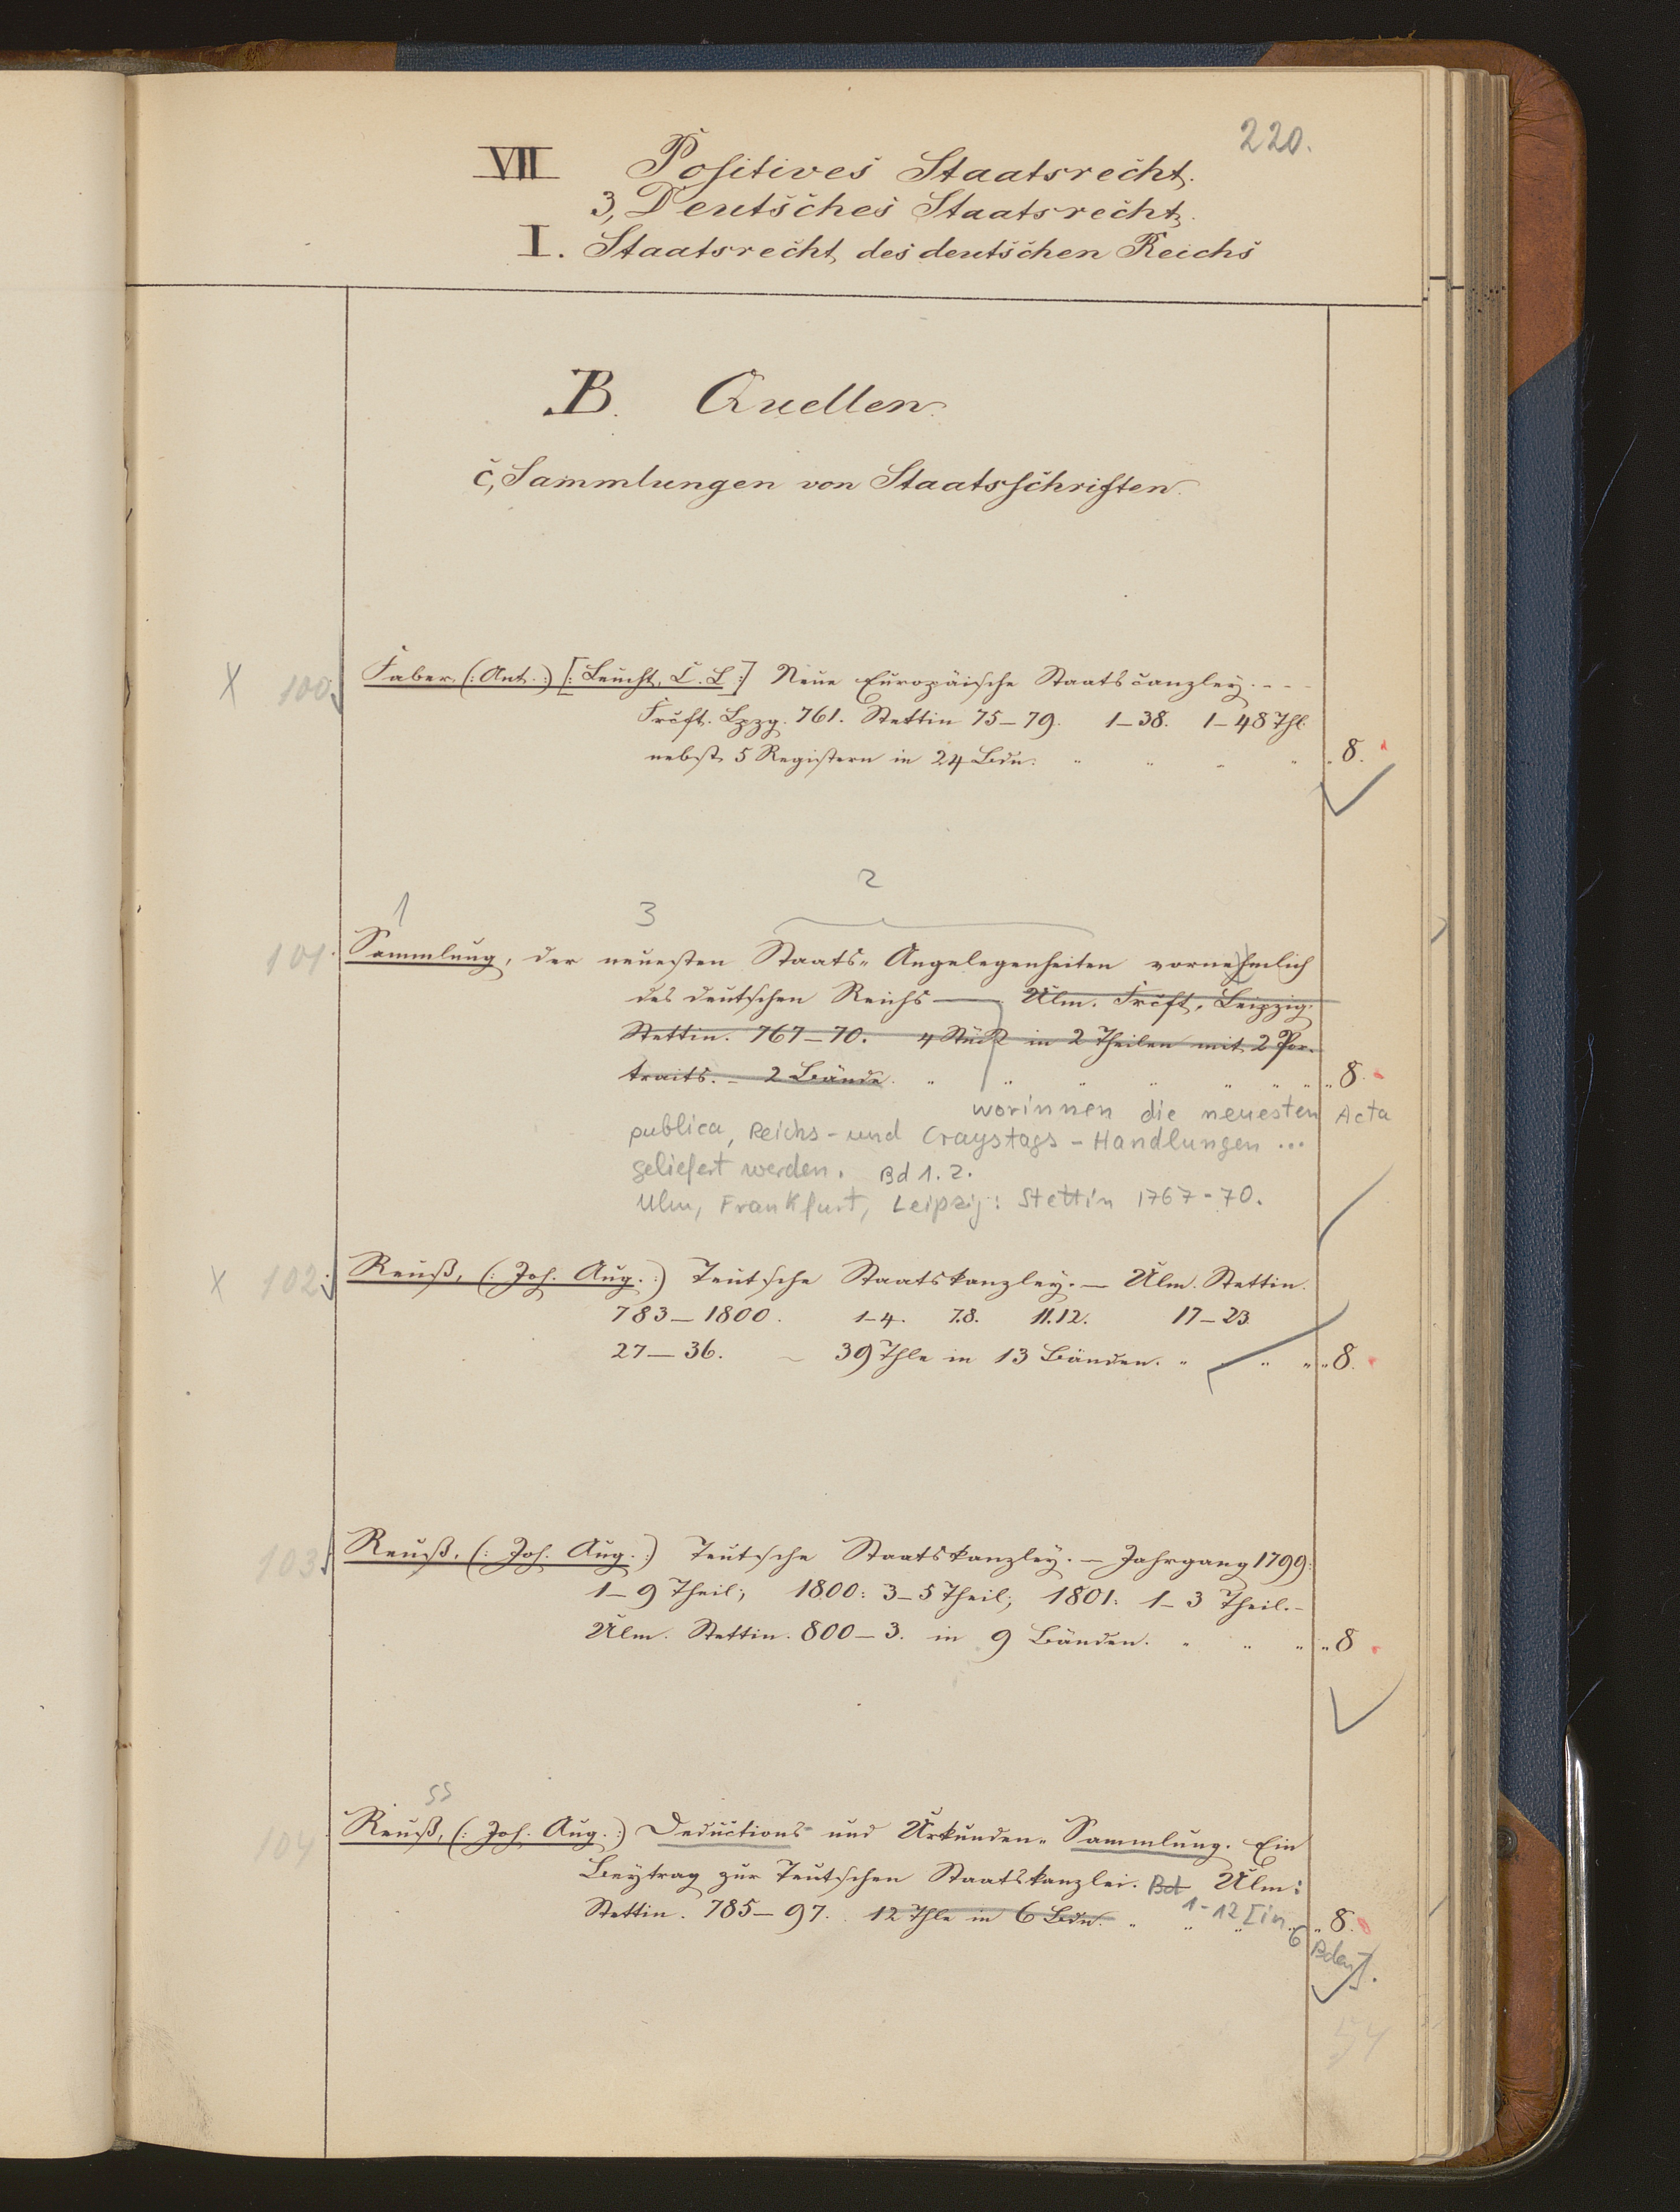 220.
VII Positives Staatsrecht.
3, Deutsches Staatsrecht.
I. Staatsrecht des deutschen Reichs
B. Quellen.
c, Sammlungen von Staatsschriften.
X 100. Faber, (: Ant. :) [: Leucht, C. L :] Neue Europäische Staatscanzley. - - -
Frcft. Lpzg. 761. Stettin 75–79. 1–38. 1–48 Thl.
nebst 5 Registern in 24 Bdn. " " " " " 8.
2
1 3
101. Sammlung, der neuesten Staats-Angelegenheiten vornehmlich
des deutschen Reichs — Ulm. Frcft. Leipzig.
Stettin. 767–70. 4 Stück in 2 Theilen mit 2 Por-
traits. – 2 Bände. " " " " " " " " 8.
worinnen die neuesten Acta
publica, Reichs- und Craystags-Handlungen ...
geliefert werden. Bd 1. 2.
Ulm, Frankfurt, Leipzig: Stettin 1767-70.
X 102. Reuß, (: Joh. Aug. :) Teutsche Staatskanzley. — Ulm. Stettin.
783–1800. 1–4. 7.8. 11.12. 17–23
27–36. ~ 39 Thle in 13 Bänden. " " " " " 8.
103. Reuß, (: Joh. Aug. :) Teutsche Staatskanzley. — Jahrgang 1799:
1–9 Theil; 1800: 3–5 Theil; 1801: 1–3 Theil. –
Ulm. Stettin. 800–3. in 9 Bänden. " " " " 8
ss
104. Reuß, (: Joh. Aug. :) Deductions- und Urkunden-Sammlung. Ein
Beytrag zur Teutschen Staatskanzlei. Bd Ulm:
Stettin. 785–97. 12 Thle in 6 Bdn. " " " 1-12 [in " 8.
6 Bden].
54